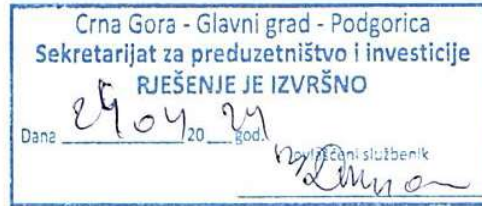 Crna Gora - Glavni grad - Podgorica
Sekretarijat za preduzetništvo i investicije
RJEŠENJE JE IZVRŠNO
Dana 24 04 20 24 god.
Ovlašćeni službenik